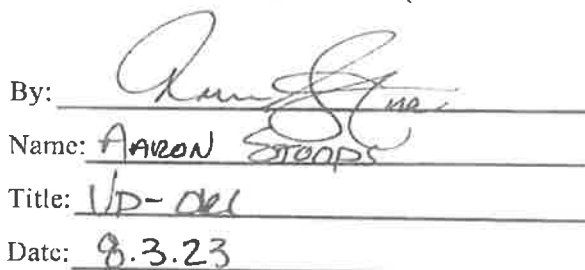 By:
Name: AARON STOOPS
Title: VP-
Date: 8.3.23